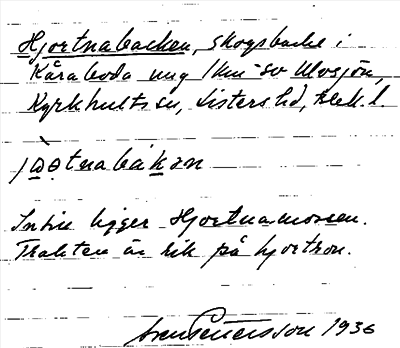 Hjortnabacken, skogsbacke i
Kåraboda ung 1 km SV Ulvsjön,
Kyrkhults sn, Listers hd, Blek. l.
Intill ligger Hjortnamossen.
Trakten är rik på hjortron.
Sven Pettersson 1936